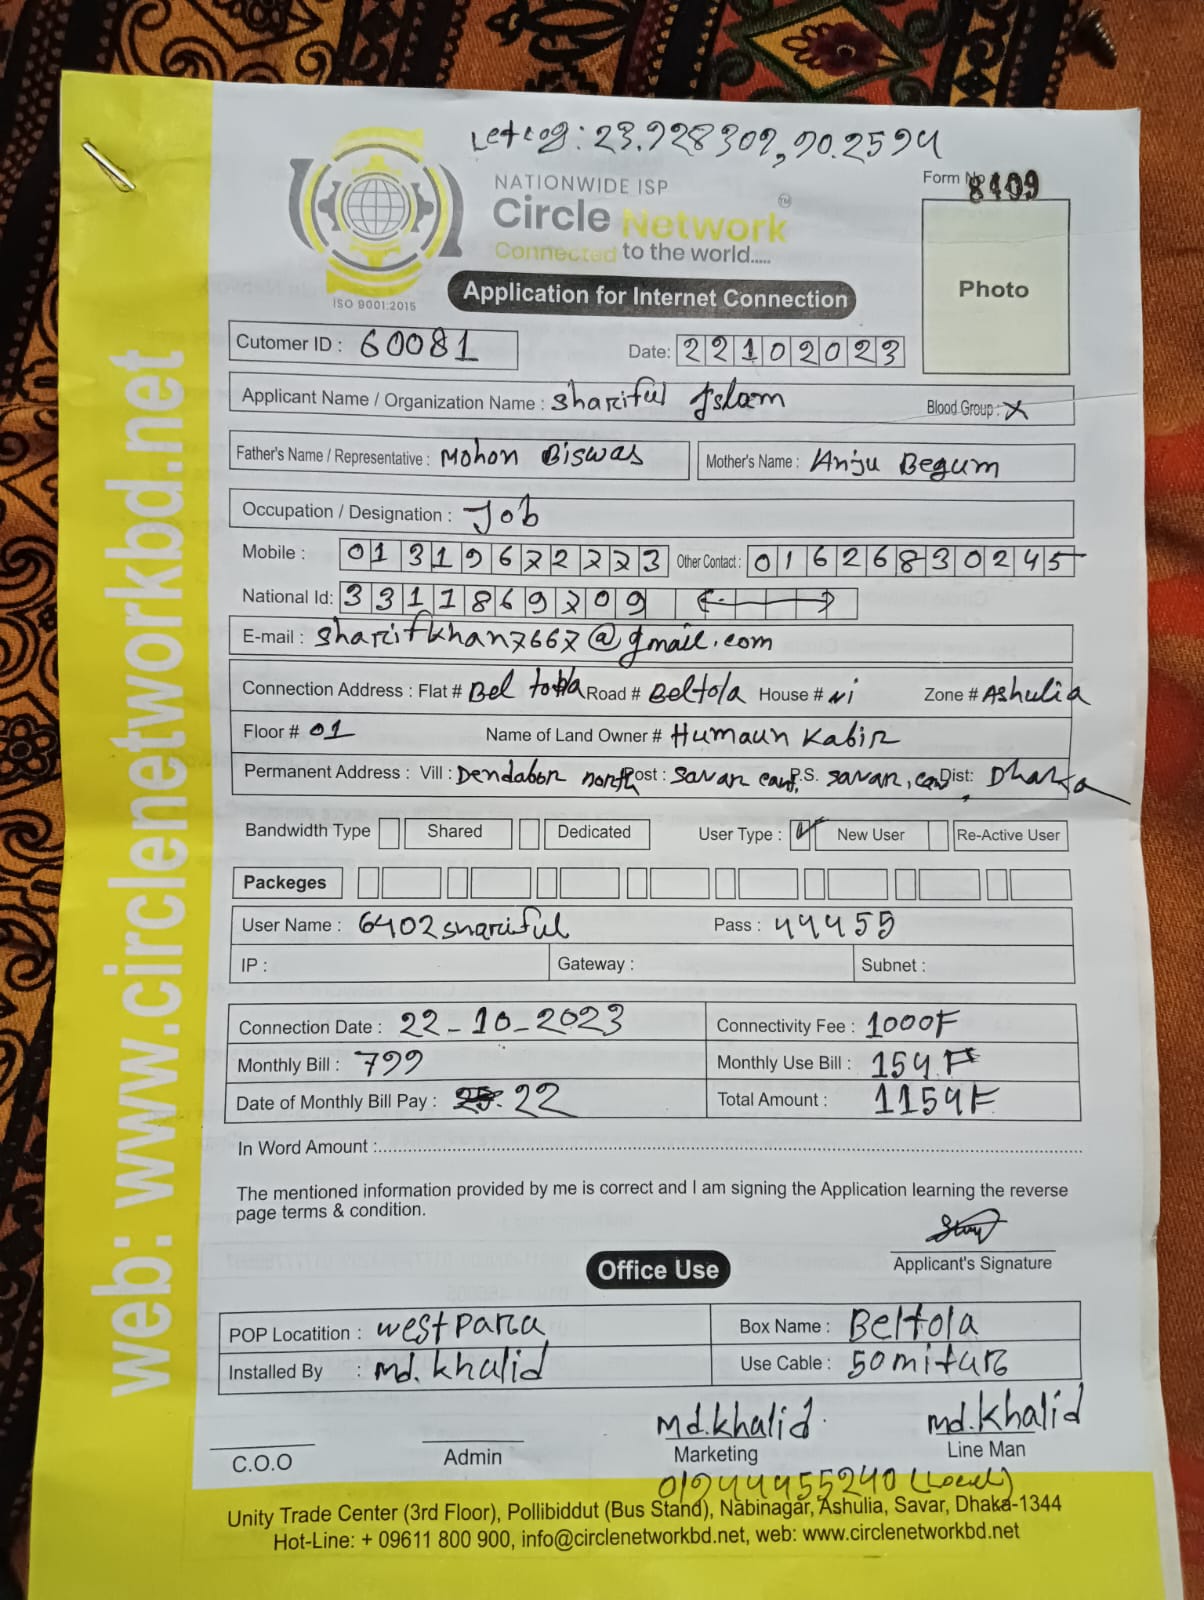 Letlog: 23.928309, 90.2594
NATIONWIDE ISP
Form No 8409
Circle Network TM
Connected to the world.....
ISO 9001:2015
Application for Internet Connection
Photo
Cutomer ID : 60081
Date: 22102023
Applicant Name / Organization Name : Shariful Islam Blood Group : X
Father's Name / Representative : Mohon Biswas Mother's Name : Anju Begum
Occupation / Designation : Job
Mobile : 01319672773 Other Contact : 01626830245
National Id: 3311869709
E-mail : sharifkhan7667@gmail.com
Connection Address : Flat # Bel tola Road # Beltola House # Ni Zone # Ashulia
Floor # 01 Name of Land Owner # Humaun Kabir
Permanent Address : Vill : Dendabor north Post : Savar cant, P.S. Savar, Dist: Dhaka
Bandwidth Type Shared Dedicated User Type : New User Re-Active User
Packeges
User Name : 6402shariful Pass : 44455
IP : Gateway : Subnet :
Connection Date : 22-10-2023 Connectivity Fee : 1000F
Monthly Bill : 799 Monthly Use Bill : 159 F
Date of Monthly Bill Pay : 22 Total Amount : 1159F
In Word Amount :
The mentioned information provided by me is correct and I am signing the Application learning the reverse
page terms & condition.
Applicant's Signature
Office Use
POP Locatition : westpara Box Name : Beltola
Installed By : md. khalid Use Cable : 50mitar
md.khalid md.khalid
C.O.O Admin Marketing Line Man
Unity Trade Center (3rd Floor), Pollibiddut (Bus Stand), Nabinagar, Ashulia, Savar, Dhaka-1344
Hot-Line: + 09611 800 900, info@circlenetworkbd.net, web: www.circlenetworkbd.net
web: www.circlenetworkbd.net